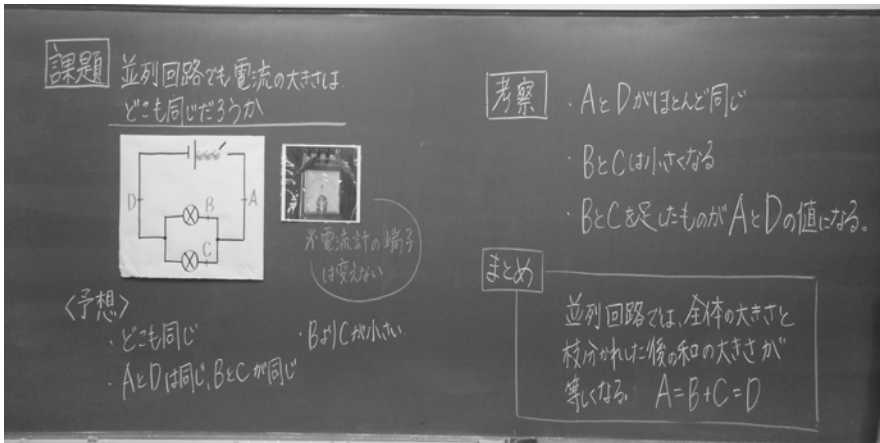 課題
並列回路でも電流の大きさは
どこも同じだろうか
D
B
A
C
※電流計の端子
は変えない
〈予想〉
・どこも同じ
・BよりCが小さい
・AとDは同じ、BとCが同じ
考察
・AとDがほとんど同じ
・BとCは小さくなる
・BとCを足したものがAとDの値になる。
まとめ
並列回路では、全体の大きさと
枝分かれした後の和の大きさが
等しくなる A=B+C=D